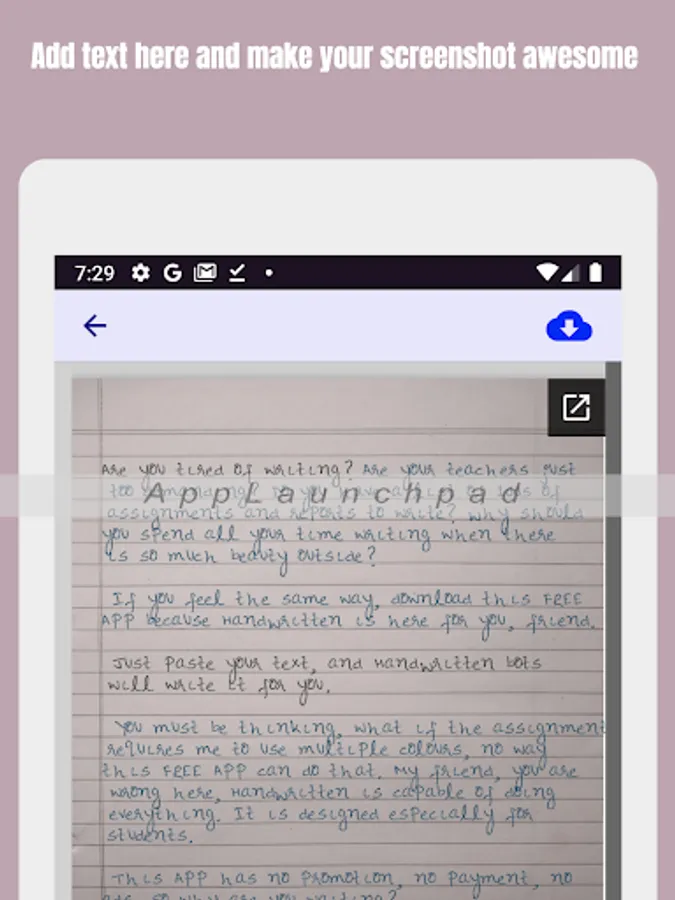 Add text here and make your screenshot awesome
7:29
Are you tired of writing? Are your teachers just
too demanding? Do you have a lot of
AppLaunchpad
assignments and reports to write? Why should
you spend all your time writing when there
is so much beauty outside?
If you feel the same way, download this FREE
APP because Handwritten is here for you, friend.
Just paste your text, and Handwritten bots
will write it for you.
You must be thinking, what if the assignment
requires me to use multiple colours, no way
this FREE APP can do that. My friend, you are
wrong here, Handwritten is capable of doing
everything. It is designed especially for
students.
This APP has no promotion, no payment, no
ads, so why are you waiting?